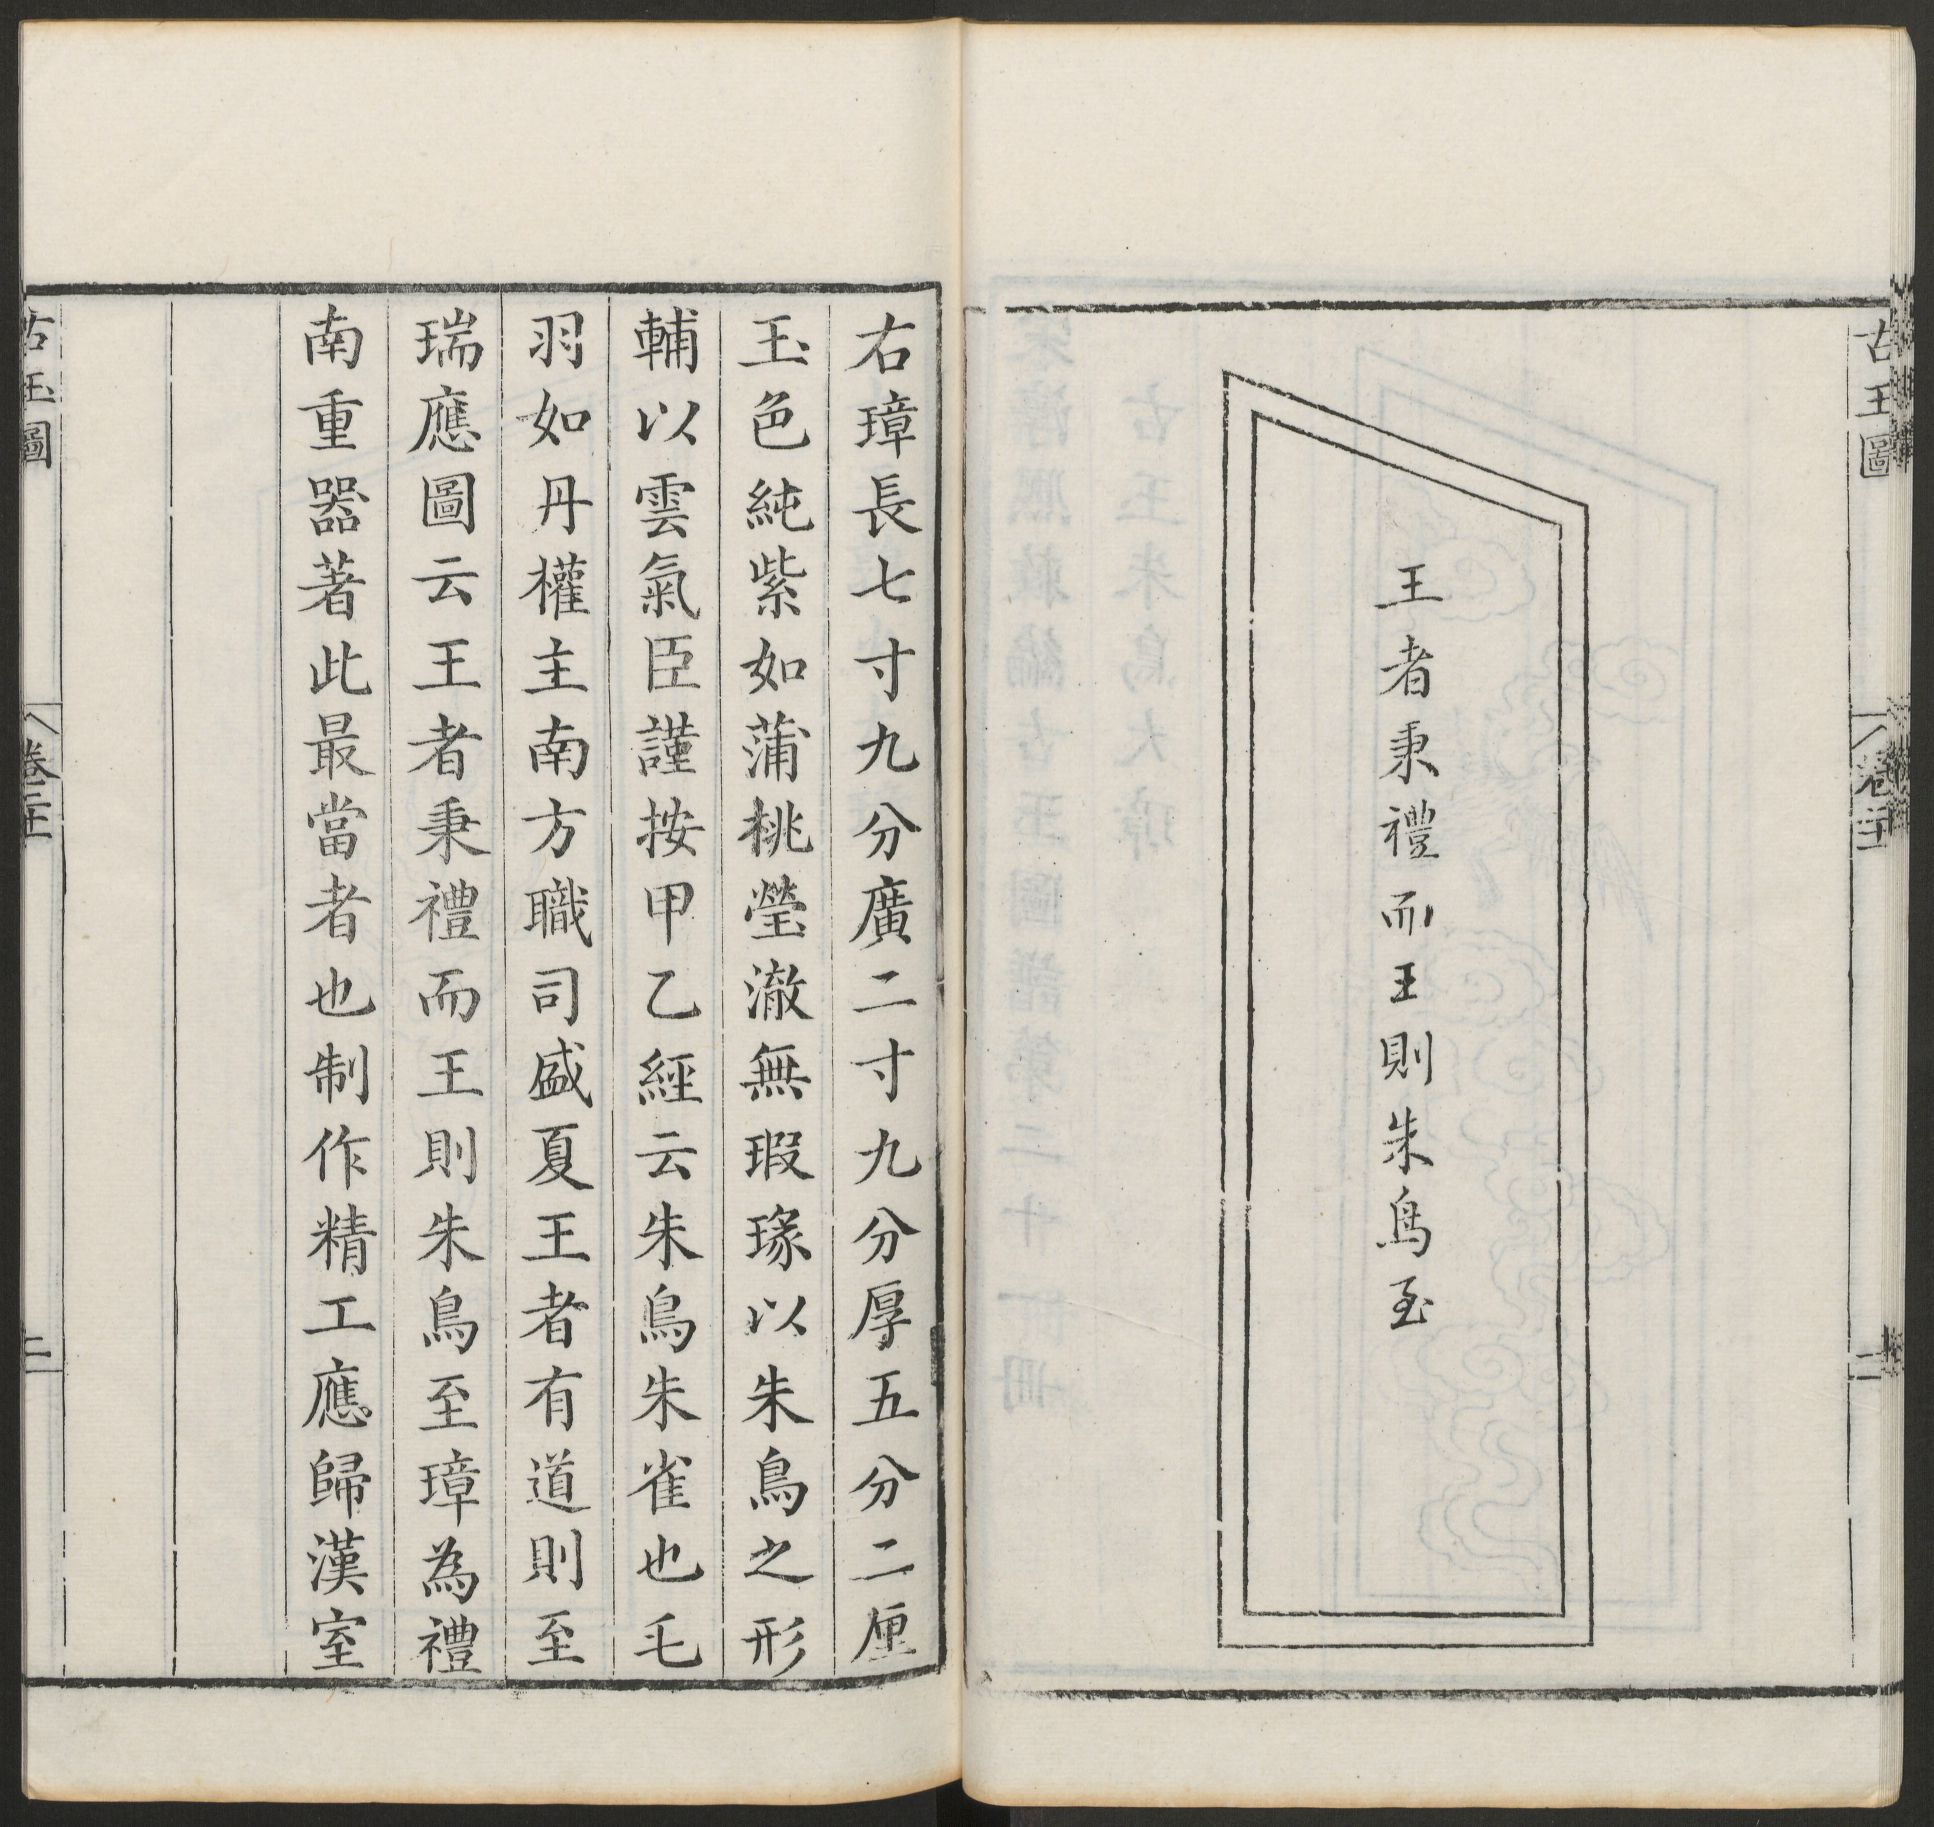 古玉圖
卷二十一
二
王者秉禮而王則朱鳥至
右璋長七寸九分廣二寸九分厚五分二厘
玉色純紫如蒲桃瑩澈無瑕瑑以朱鳥之形
輔以雲氣臣謹按甲乙經云朱鳥朱雀也毛
羽如丹權主南方職司盛夏王者有道則至
瑞應圖云王者秉禮而王則朱鳥至璋為禮
南重器著此最當者也制作精工應歸漢室
古玉圖
卷二十一
二